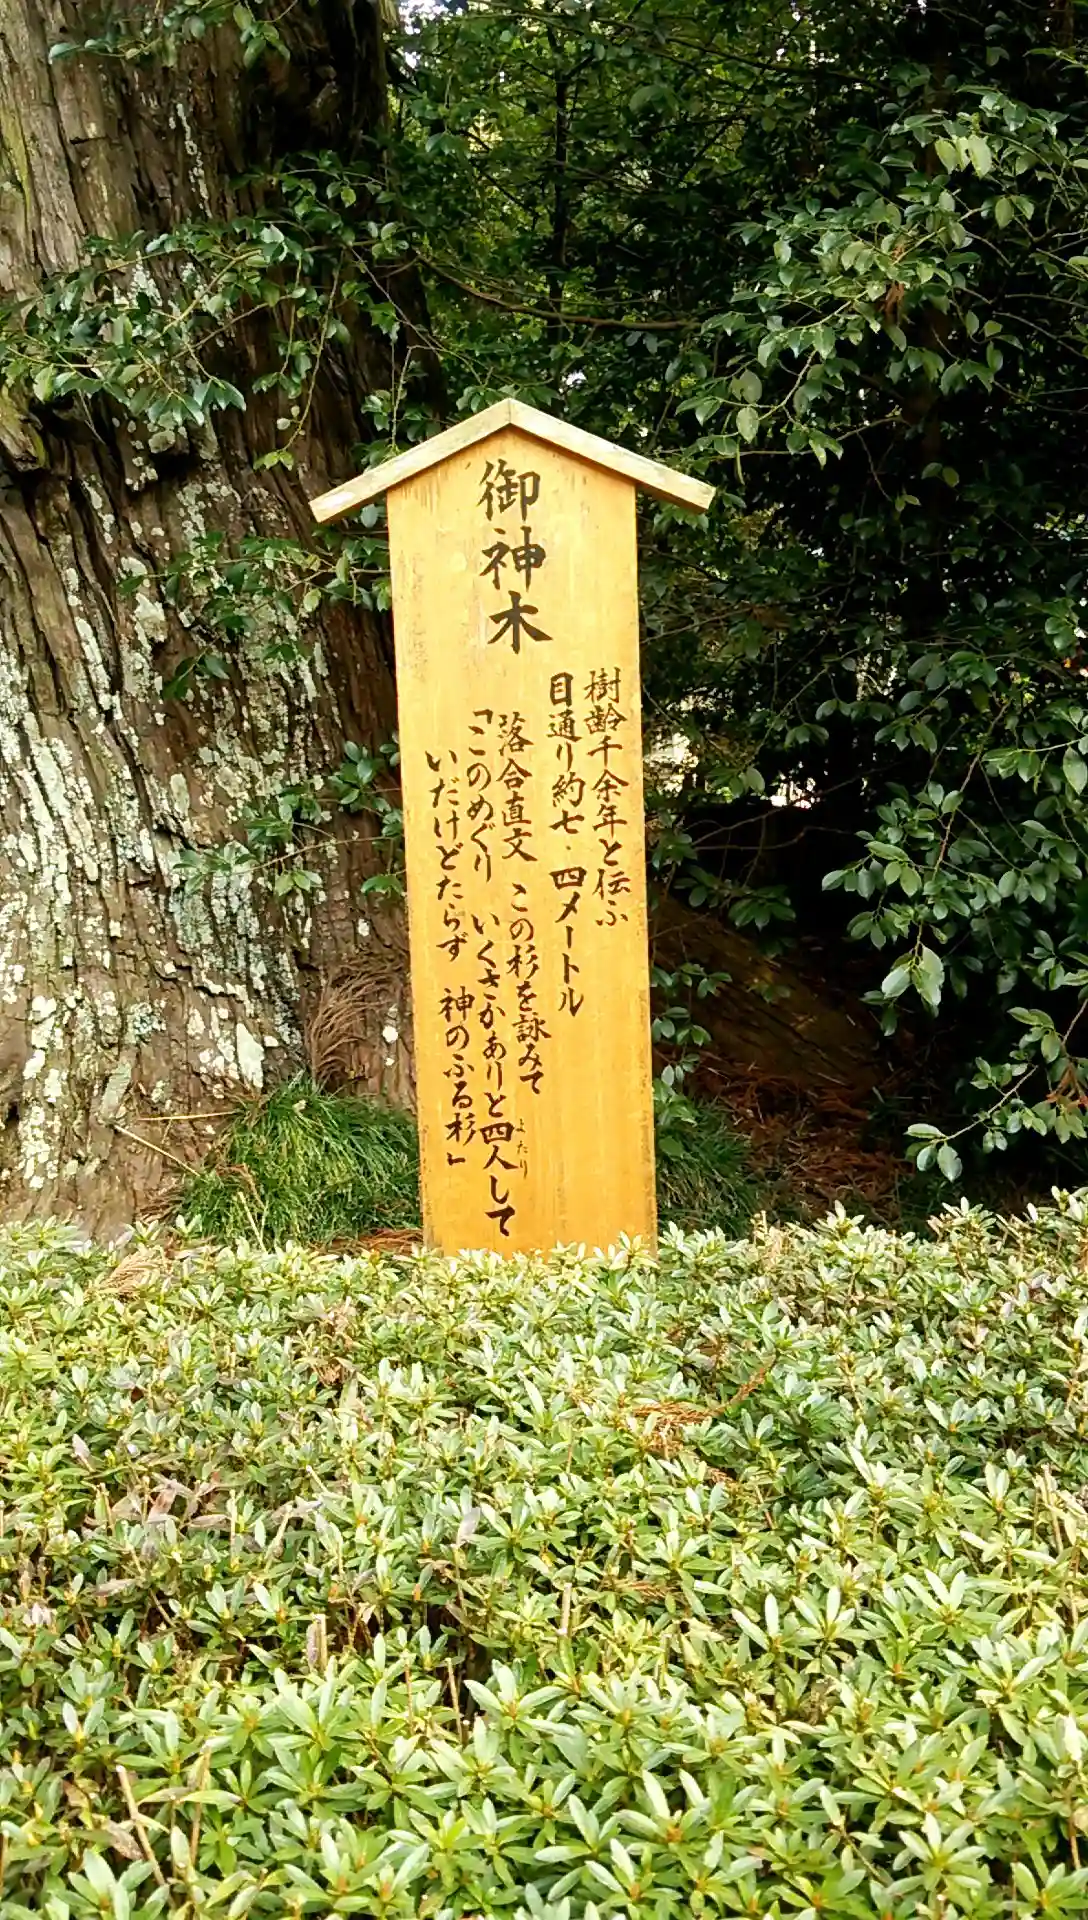 御神木
樹齢千余年と伝ふ
目通り約七.四メートル
落合直文 この杉を詠みて
「このめぐり いくさかありと四人して
よたり
いだけどたらず 神のふる杉」